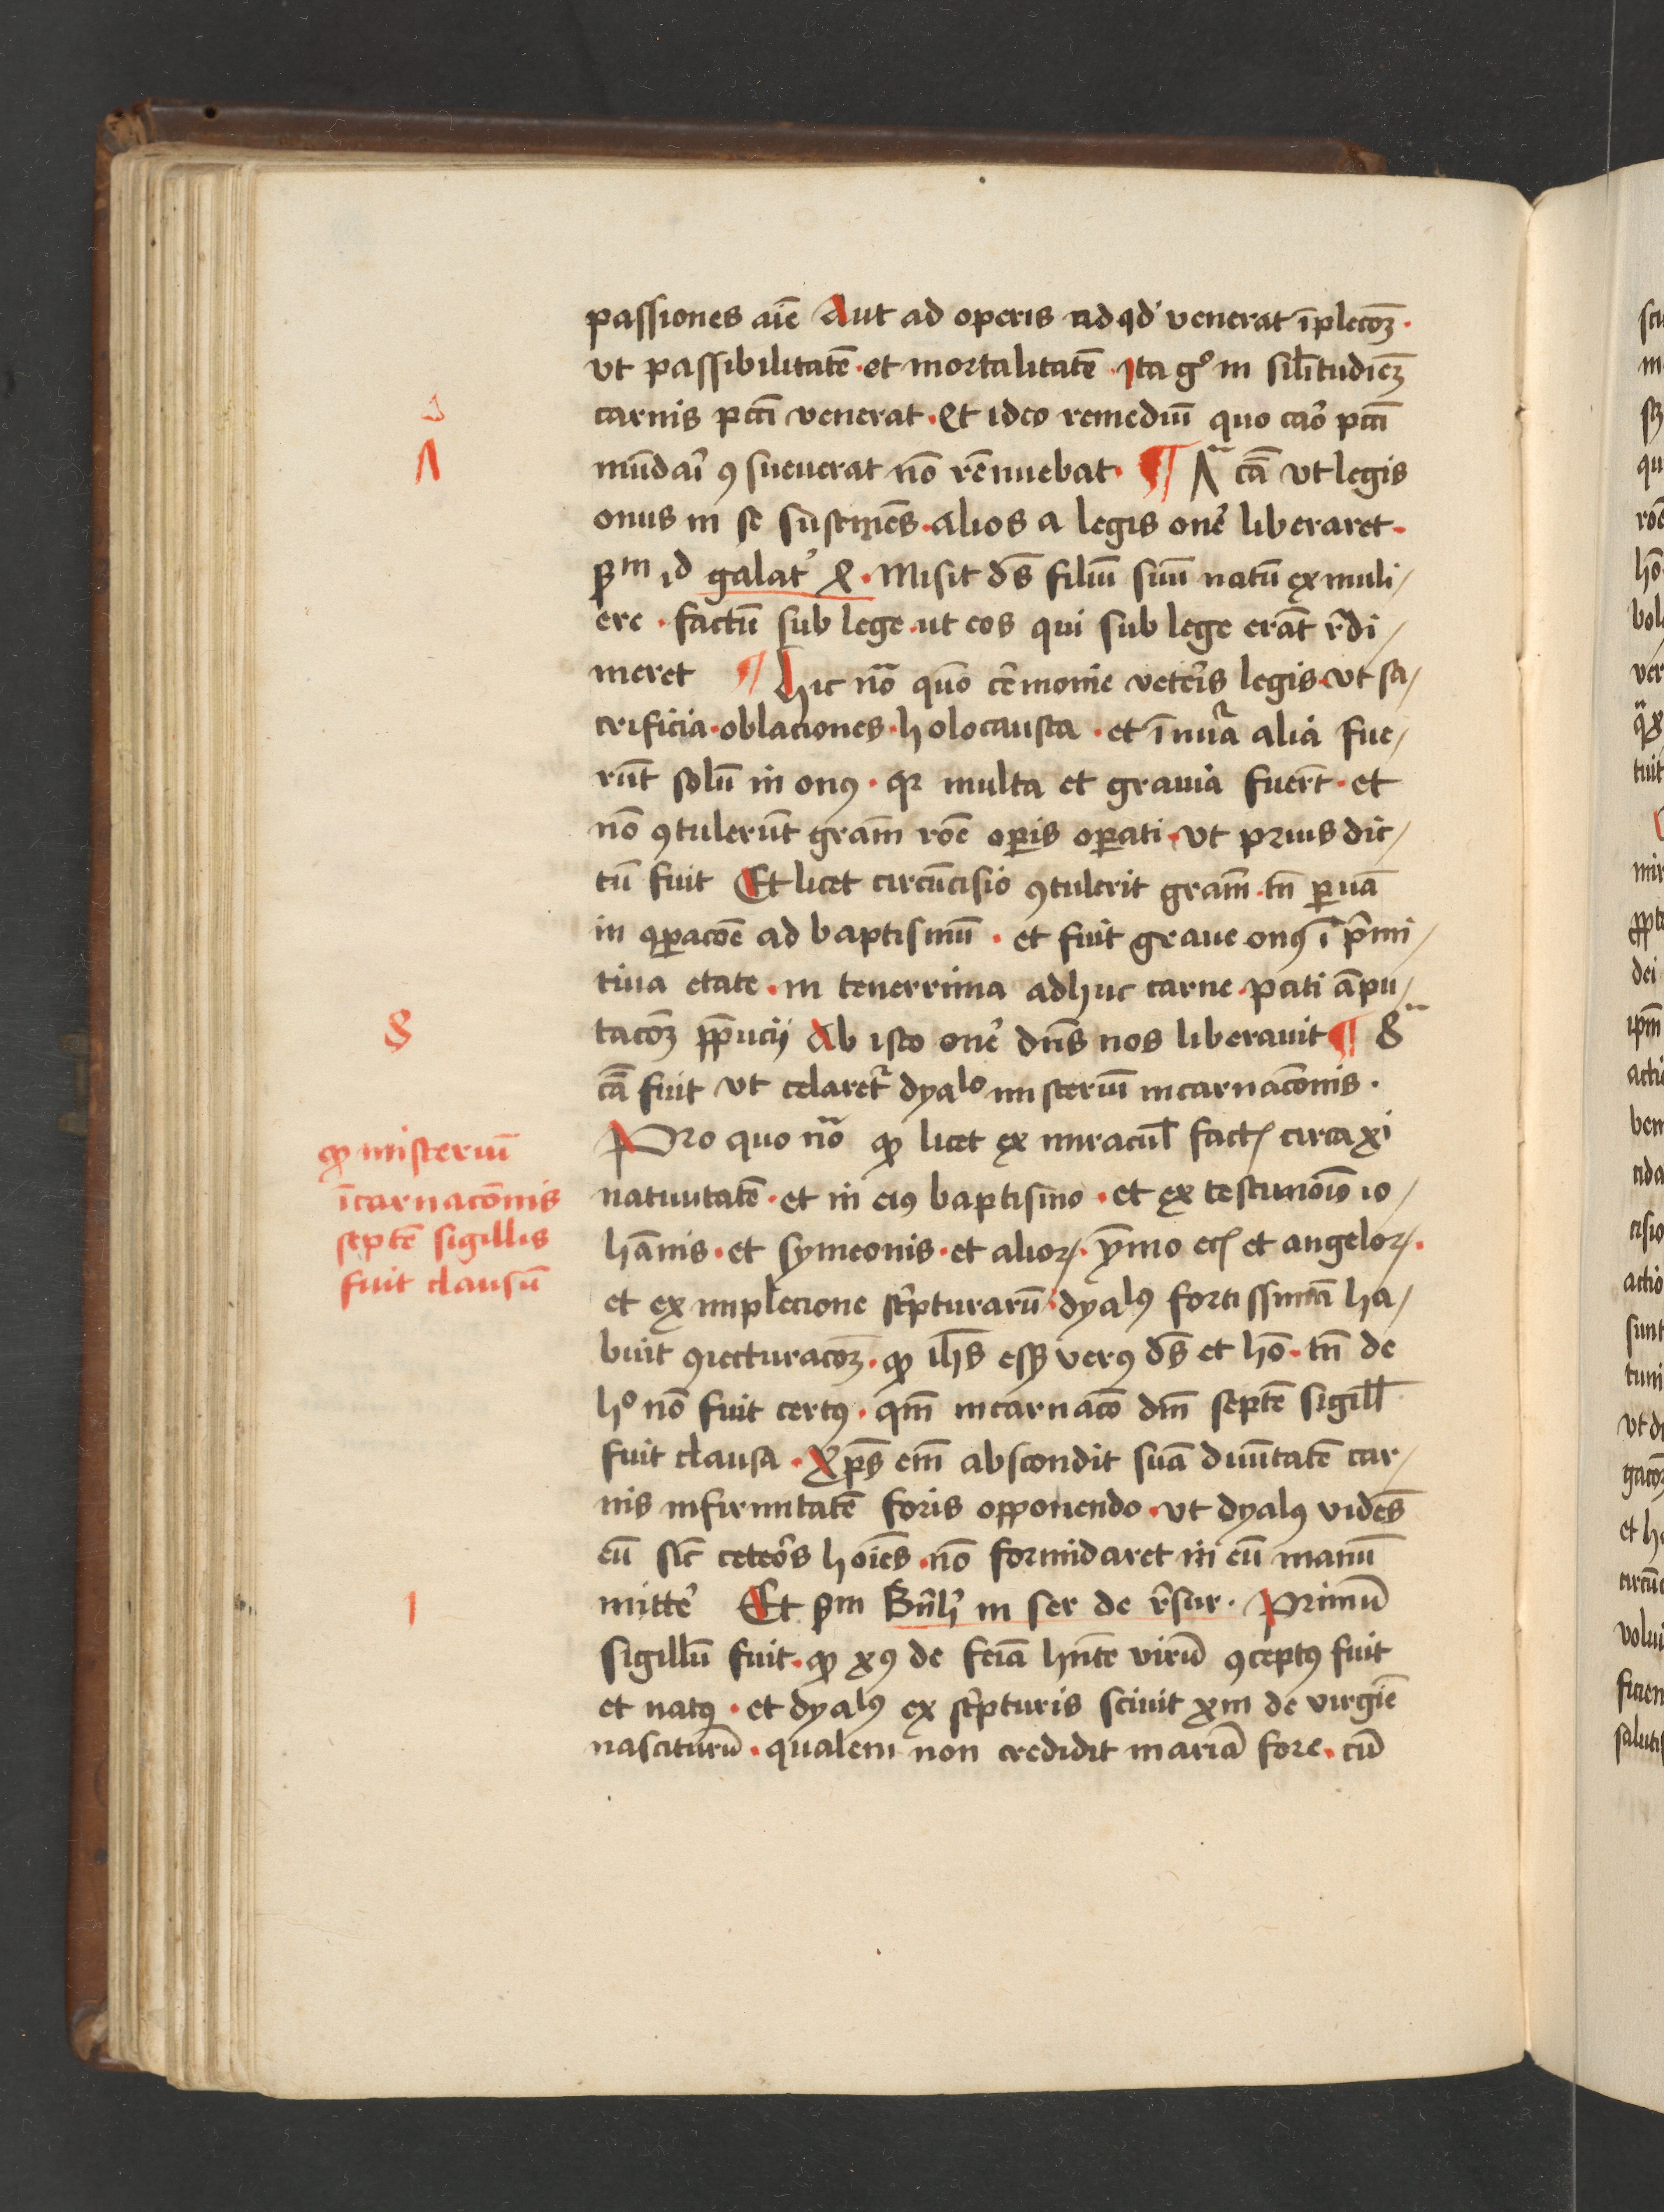 passiones aīe Aut ad operis ad qđ venerat īplecōꝫ·
vt passibilitatē·et mortalitatē·Ita gͦ in sil̄itudiēꝫ
carnis pcc̄i venerat·Et ideo remediū quo caro pcc̄i
mūdari ꝯsueuerat nō rēnuebat· ¶ Λᵃ cā vt legis
onus in se sustinēs·alios a legis one͛ liberaret·
ẜm id galat͛ 4·Misit dē̄s filiū suū natū ex muli/
ere·factū sub lege·ut eos qui sub lege erāt r̄di/
meret ¶ Hic nō quō cērmonie veteris legis·vt sa/
crificia·oblaciones·holocausta·et īnūa alia fue/
rūt solū in onꝰ·qꝛ multa et grauia fuert̄·et
nō ꝯtulerūt gram̄ rōe oꝑis oꝑati·vt prius dic/
tū fuit Et licet circūcisio ꝯtulerit gram̄·tn̄ ꝑuā
in ꝯꝑacōe ad baptismū·et fuit graue onꝰ ī pͥmi/
tiua etate·in tenerrima adhuc carne·pati āpu/
tacōꝫ p̄pucij Ab isto one͛ dn̄s nos liberauit ¶ 8ᵃ
cā fuit vt celaret᷑ dyalo misteriū incarnacōnis·
Pro quo nō ꝙ licet ex miracul̄ fact̄ circa xi
natiuitatē·et in eiꝰ baptismo·et ex testimōīs io/
hānis·et symeonis·et alioꝝ·ymo ec̄ et angeloꝝ·
et ex implecione sc͛pturarū·dyalꝰ fortissimā ha/
buit ꝯiecturacōꝫ·ꝙ ihs̄ eßꝫ verꝰ ds̄ et hō·tn̄ de
hͦ nō fuit certꝰ·qm̄ incarnacō dm̄ septē sigill̄
fuit clausa·Xp̄s em̄ abscondit suā diuītatē car/
nis infirmitatē foris opponendo·vt dyalꝰ vidēs
eū sic̄ ceteros hoīes·nō formidaret in eū manū
mitte͛ Et ẜm Bn̄h͛ in ser de r̄sur· Primū
sigillū fuit·ꝙ xꝰ de feīa hn̄te virū ꝯceptꝰ fuit
et natꝰ·et dyalꝰ ex sc͛pturis sciuit xm̄ de virgiē
nasciturū·qualem non credidit mariā fore·cū
Λ
8
ꝙ misteriū
īcarnacōnis
septē sigillis
fuit clausū
1